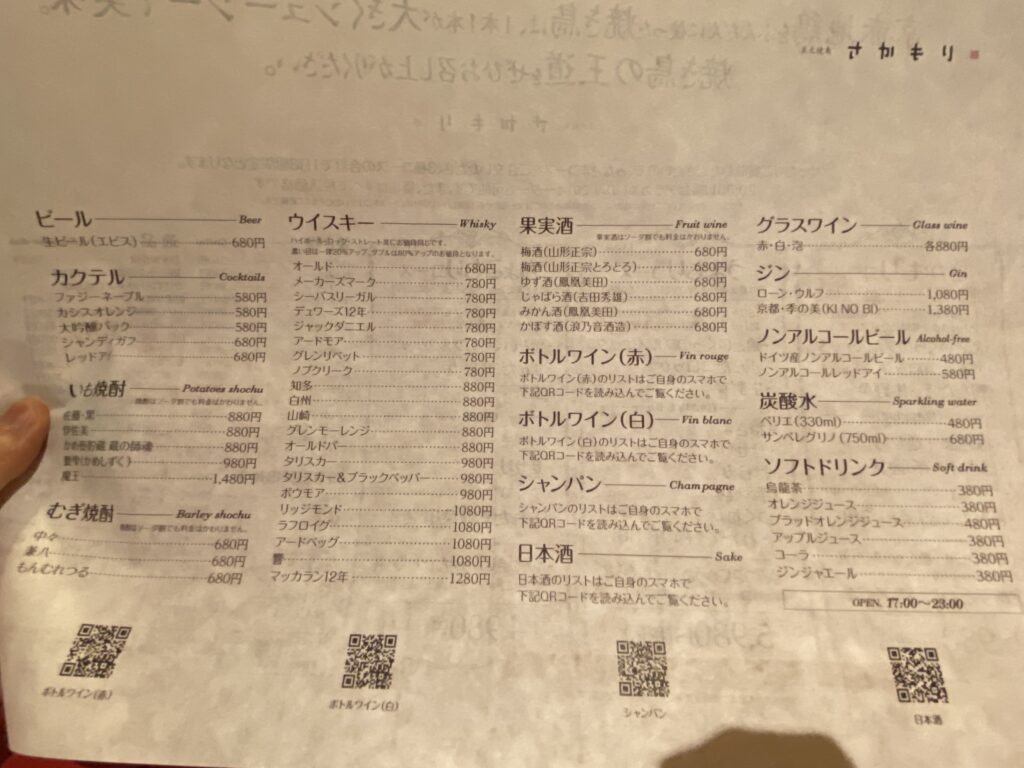 さかもり
ビール Beer
生ビール(エビス) 680円
カクテル Cocktails
ファジーネーブル 580円
カシスオレンジ 580円
大吟醸パック 580円
シャンディガフ 680円
レッドアイ 680円
いも焼酎 Potatoes shochu
焼酎はソーダ割でも料金はかわりません。
佐藤・黒 880円
伊佐美 880円
かめ壺貯蔵 蔵の師魂 880円
(かめしずく) 980円
魔王 1,480円
むぎ焼酎 Barley shochu
焼酎はソーダ割でも料金はかわりません。
中々 680円
兼八 680円
もんむれつる 680円
ウイスキー Whisky
ハイボール・ロック・ストレート共にお値段同じです。
濃い目は一律20%アップ、ダブルは80%アップのお値段となります。
オールド 680円
メーカーズマーク 780円
シーバスリーガル 780円
デュワーズ12年 780円
ジャックダニエル 780円
アードモア 780円
グレンリベット 780円
ノブクリーク 780円
知多 880円
白州 880円
山崎 880円
グレンモーレンジ 880円
オールドパー 880円
タリスカー 980円
タリスカー&ブラックペッパー 980円
ボウモア 980円
リッジモンド 1080円
ラフロイグ 1080円
アードベッグ 1080円
響 1080円
マッカラン12年 1280円
果実酒 Fruit wine
果実酒はソーダ割でも料金はかわりません。
梅酒(山形正宗) 680円
梅酒(山形正宗とろとろ) 680円
ゆず酒(鳳凰美田) 680円
じゃばら酒(吉田秀雄) 680円
みかん酒(鳳凰美田) 680円
かぼす酒(浪乃音酒造) 680円
ボトルワイン(赤) Vin rouge
ボトルワイン(赤)のリストはご自身のスマホで
下記QRコードを読み込んでご覧ください。
ボトルワイン(白) Vin blanc
ボトルワイン(白)のリストはご自身のスマホで
下記QRコードを読み込んでご覧ください。
シャンパン Champagne
シャンパンのリストはご自身のスマホで
下記QRコードを読み込んでご覧ください。
日本酒 Sake
日本酒のリストはご自身のスマホで
下記QRコードを読み込んでご覧ください。
グラスワイン Glass wine
赤・白・泡 各880円
ジン Gin
ローン・ウルフ 1,080円
京都・季の美(KI NO BI) 1,380円
ノンアルコールビール Alcohol-free
ドイツ産ノンアルコールビール 480円
ノンアルコールレッドアイ 580円
炭酸水 Sparkling water
ペリエ(330ml) 480円
サンペレグリノ(750ml) 680円
ソフトドリンク Soft drink
烏龍茶 380円
オレンジジュース 380円
ブラッドオレンジジュース 480円
アップルジュース 380円
コーラ 380円
ジンジャエール 380円
OPEN. 17:00～23:00
ボトルワイン(赤)
ボトルワイン(白)
シャンパン
日本酒